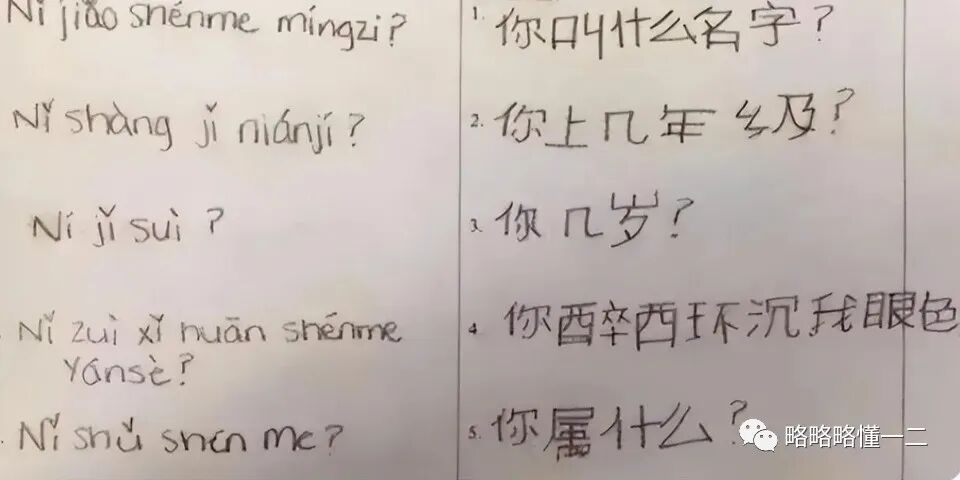 Nǐ jiào shénme míngzi?
1. 你叫什么名字?
Nǐ shàng jǐ niánjí?
2. 你上几年级?
Ní jǐ suì?
3. 你几岁?
Nǐ zuì xǐ huān shénme
yánsè?
4. 你酉卒西环沉我眼色
Nǐ shǔ shén me?
5. 你属什么?
略略略懂一二